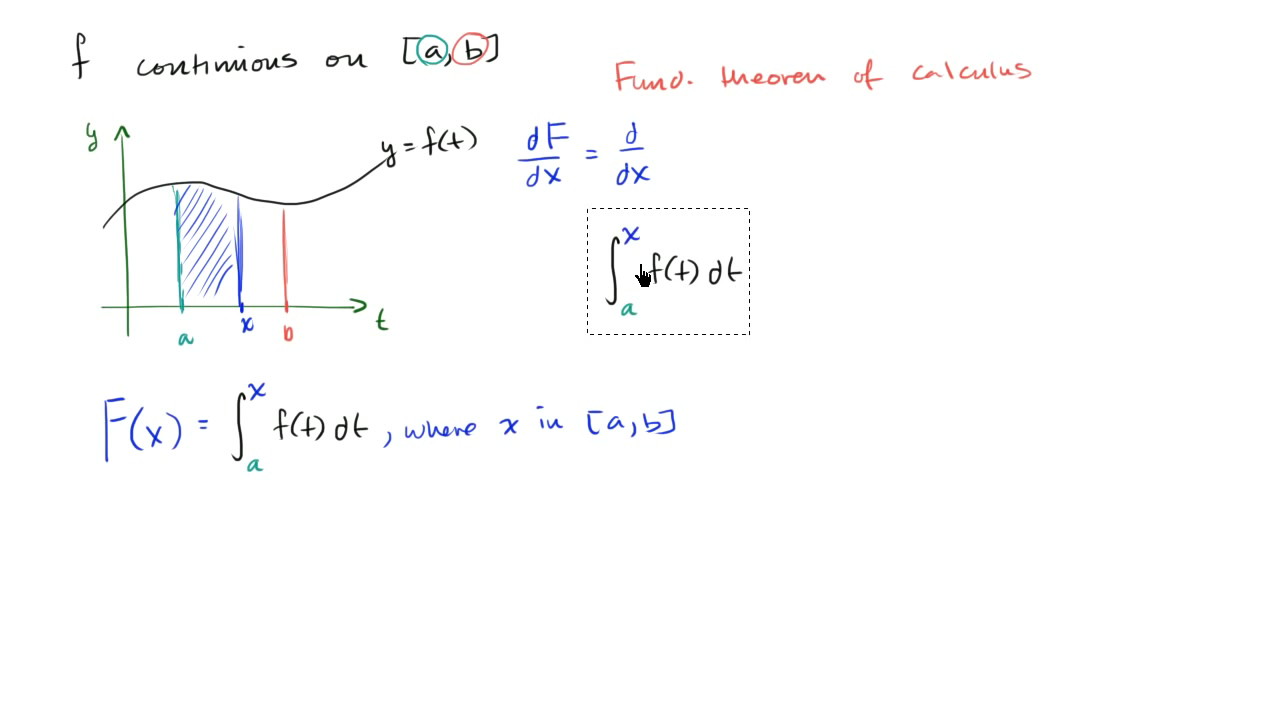 f continuous on [a, b]
Fund. theorem of calculus
y
y = f(t)
dF/dx = d/dx
∫_a^x f(t) dt
a
x
b
t
F(x) = ∫_a^x f(t) dt, where x in [a,b]